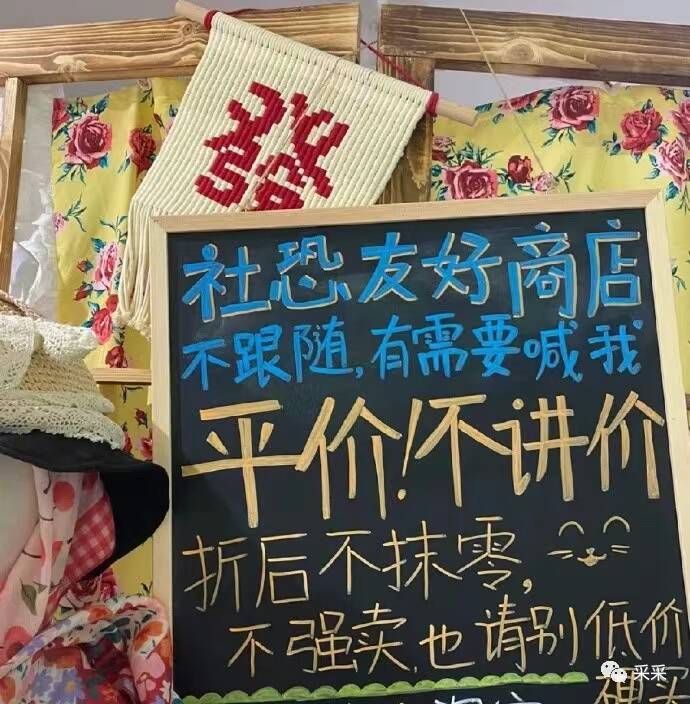 社恐友好商店
不跟随,有需要喊我
平价!不讲价
折后不抹零,
不强卖,也请别低价
裸买
采采